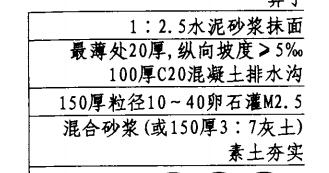 1：2.5水泥砂浆抹面
最薄处20厚,纵向坡度≥5‰
100厚C20混凝土排水沟
150厚粒径10～40卵石灌M2.5
混合砂浆(或150厚3：7灰土)
素土夯实